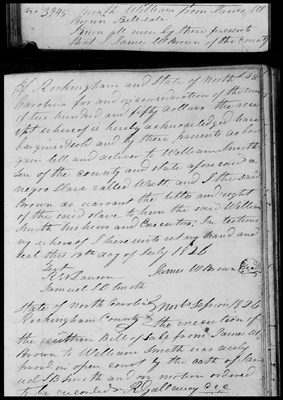 No. 3945 Smith William from James W
Brown Bill sale
Know all men by these presents
that I James W Brown of the County
of Rockingham and State of North
Carolina for and in consideration of the sum
of two hundred and fifty dollars the rec
ipt whereof is hereby acknowledged have
bargained sold and by these presents do bar
gain sell and deliver to William Smith
Sen of the county and state aforesaid a
negro Slave called Watt and I the said
Brown do warrant the title and right
of the said slave to him the said William
Smith his heirs and Executors. In testimo
ny whereof I have hereunto set my hand and
seal this 12th day of July 1826
Test
Lawson James W Brown Seal
Samuel D Smith
State of North Carolina Novr Session 1826
Rockingham County The execution of
the written Bill of Sale from James W
Brown to William Smith was duly
proved in open court by the oath of Sam
uel D Smith and on motion ordered
to be recorded R Gallaway CCC